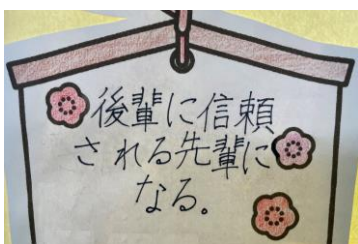 後輩に信頼
される先輩に
なる。